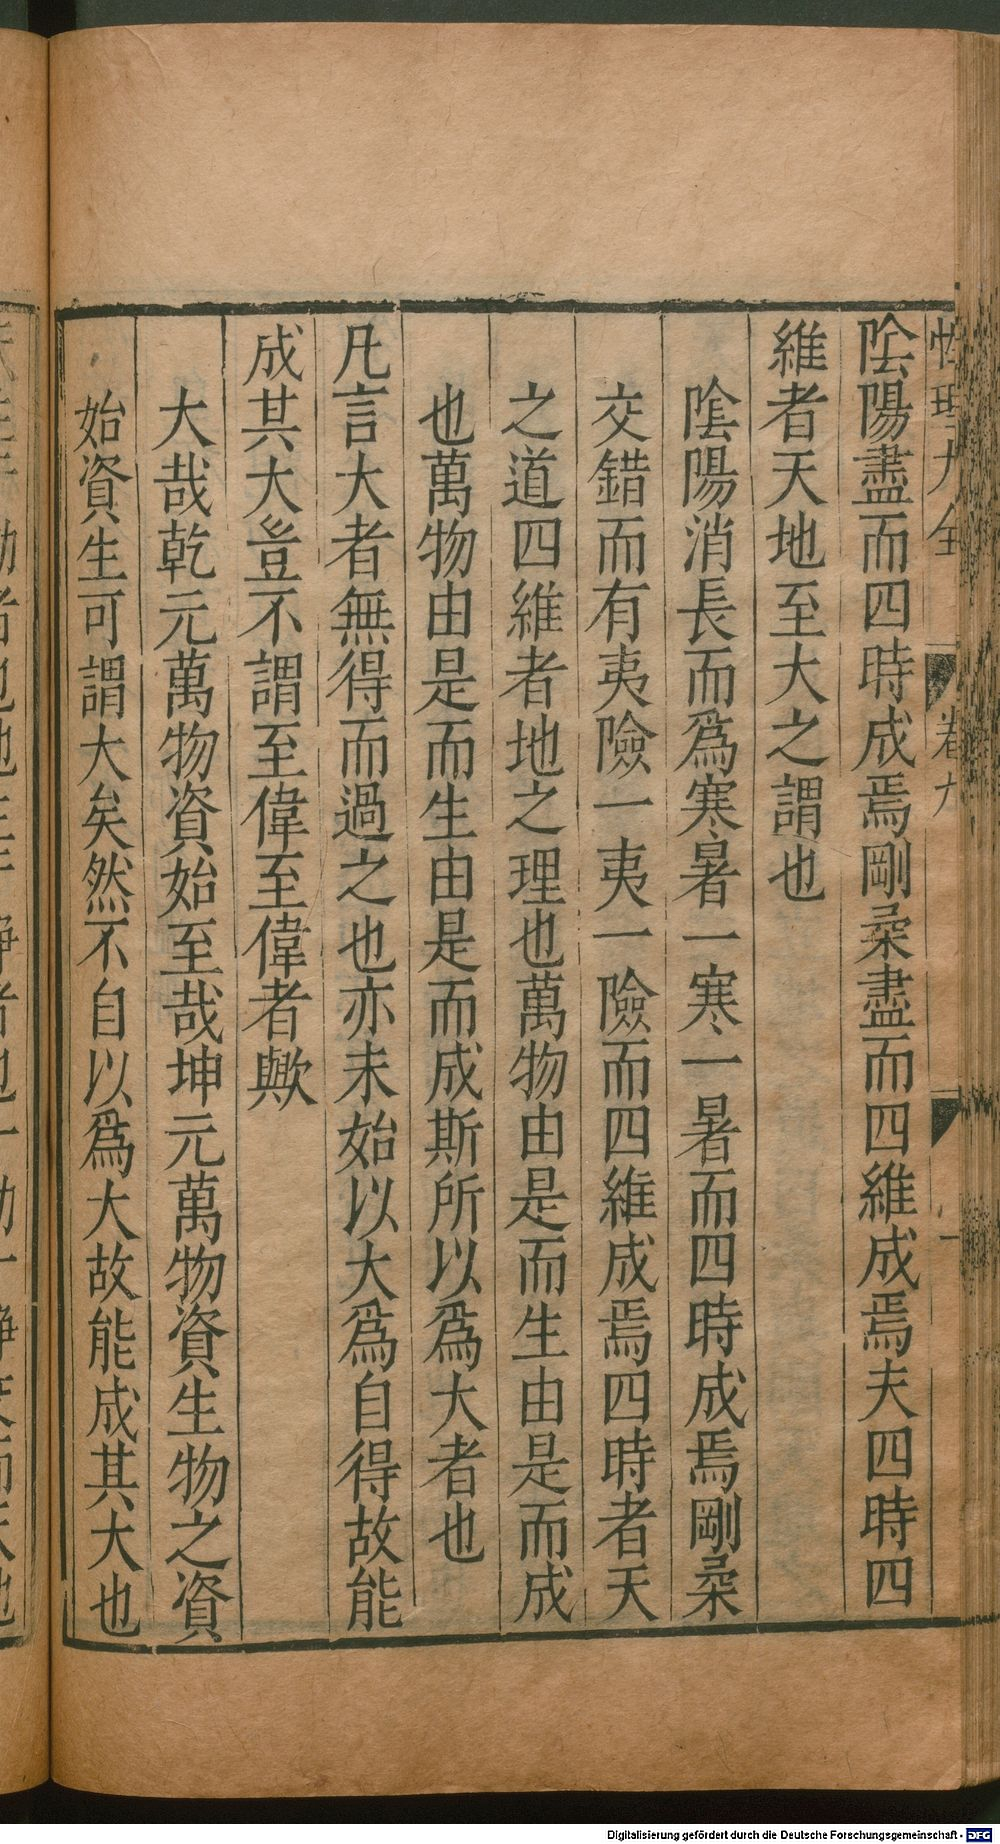 性理大全 卷九 一
陰陽盡而四時成焉剛柔盡而四維成焉夫四時四
維者天地至大之謂也
陰陽消長而爲寒暑一寒一暑而四時成焉剛柔
交錯而有夷險一夷一險而四維成焉四時者天
之道四維者地之理也萬物由是而生由是而成
也萬物由是而生由是而成斯所以爲大者也
凡言大者無得而過之也亦未始以大爲自得故能
成其大豈不謂至偉至偉者歟
大哉乾元萬物資始至哉坤元萬物資生物之資
始資生可謂大矣然不自以爲大故能成其大也
Digitalisierung gefördert durch die Deutsche Forschungsgemeinschaft - DFG